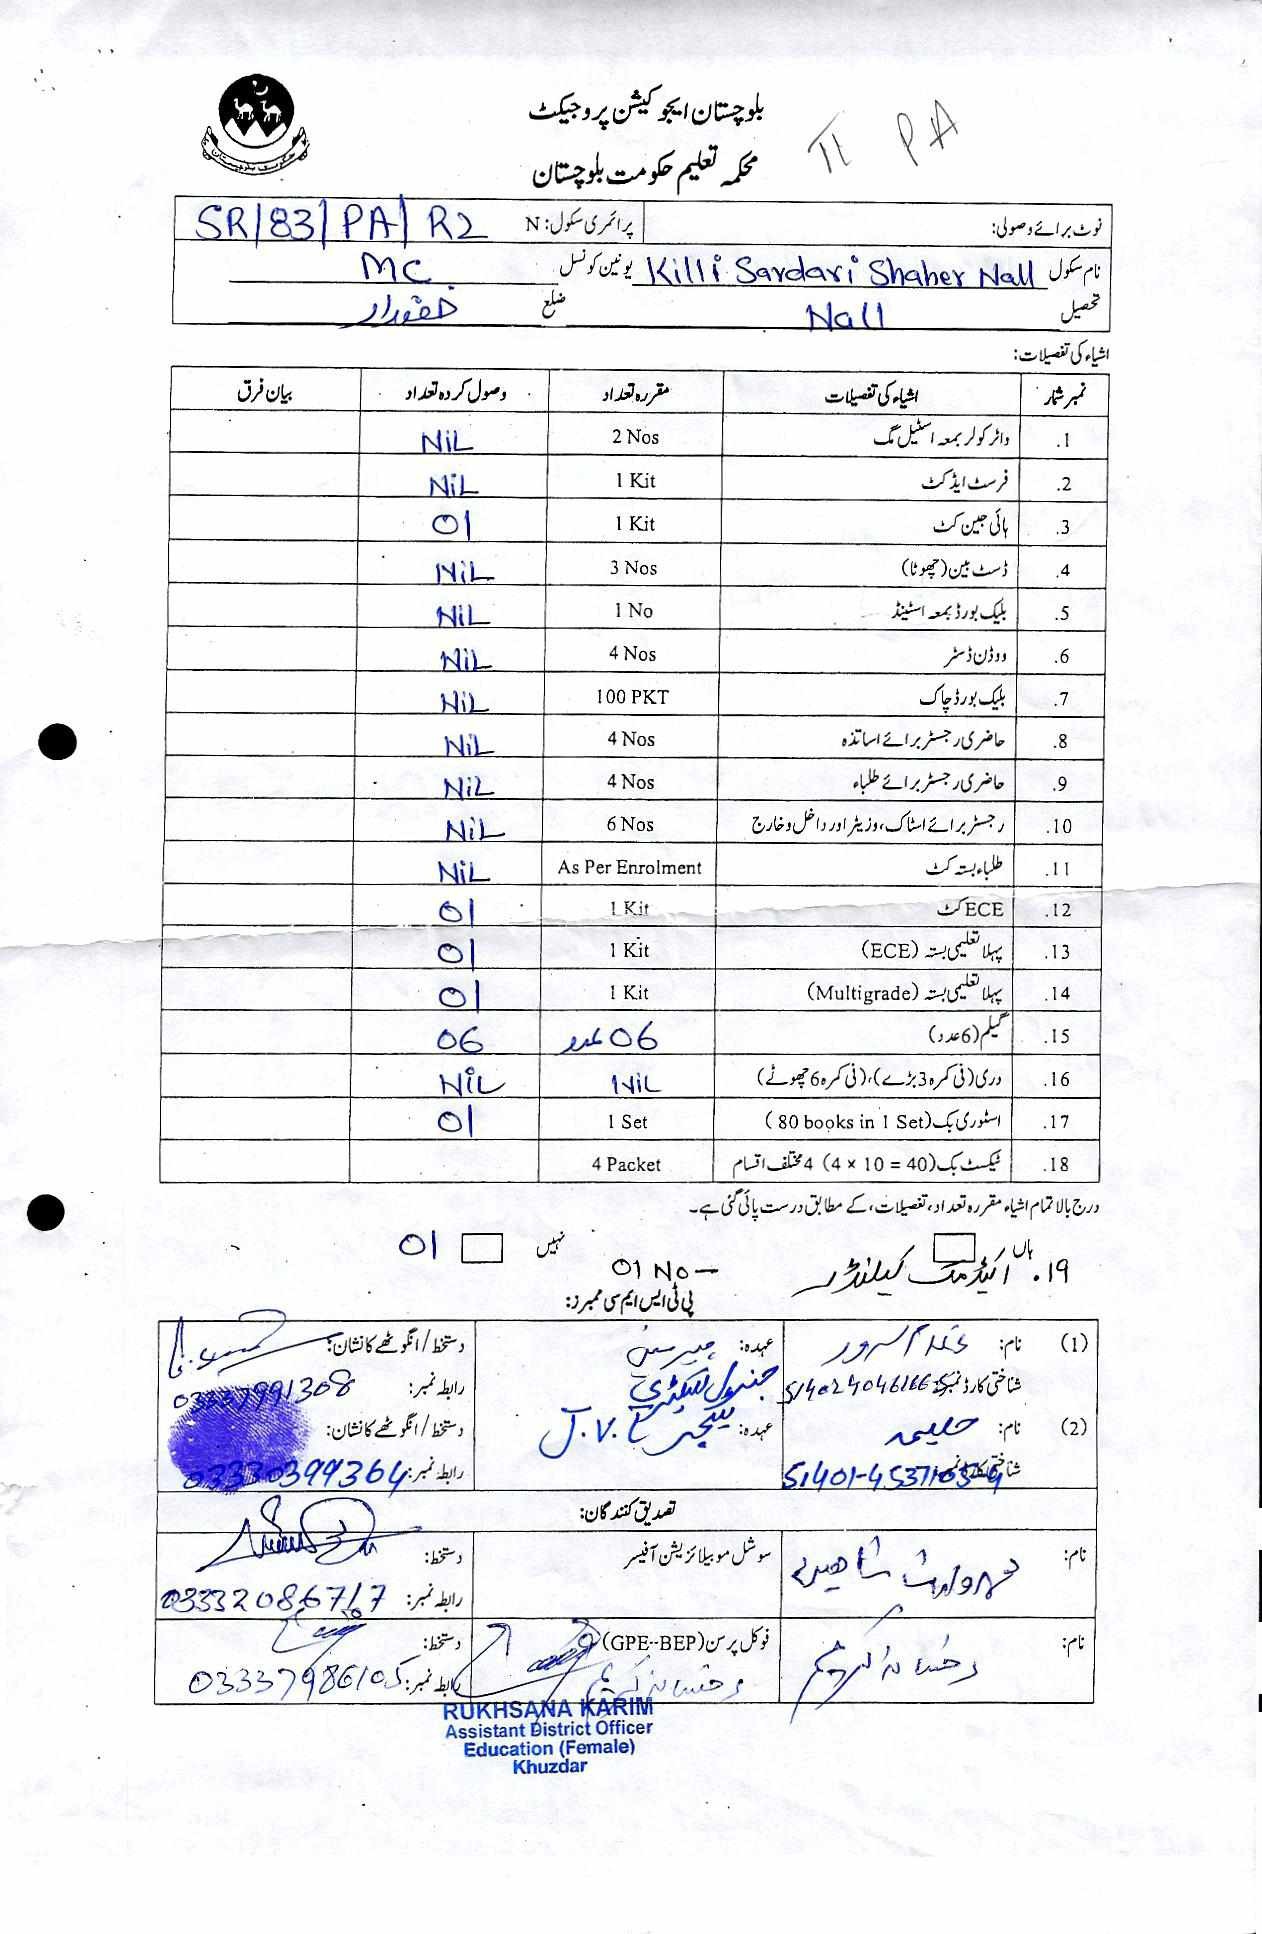 بلوچستان ایجوکیشن پروجیکٹ
محکمہ تعلیم حکومت بلوچستان
II PA
نوٹ برائے وصولی: پرائمری سکول: N SR/83/PA/R2
نام سکول Killi Sardari Shaher Nall یونین کونسل MC
تحصیل Nall ضلع خضدار
اشیاء کی تفصیلات:
نمبر شمار اشیاء کی تفصیلات مقررہ تعداد وصول کردہ تعداد بیان فرق
1. واٹر کولر بمعہ اسٹیل مگ 2 Nos NiL
2. فرسٹ ایڈ کٹ 1 Kit NiL
3. ہائی جین کٹ 1 Kit 01
4. ڈسٹ بین (چھوٹا) 3 Nos NiL
5. بلیک بورڈ بمعہ اسٹینڈ 1 No NiL
6. ووڈن ڈسٹر 4 Nos NiL
7. بلیک بورڈ چاک 100 PKT NiL
8. حاضری رجسٹر برائے اساتذہ 4 Nos NiL
9. حاضری رجسٹر برائے طلباء 4 Nos NiL
10. رجسٹر برائے اسٹاک، وزیٹر اور داخل و خارج 6 Nos NiL
11. طلباء بستہ کٹ As Per Enrolment NiL
12. ECE کٹ 1 Kit 01
13. پہلا تعلیمی بستہ (ECE) 1 Kit 01
14. پہلا تعلیمی بستہ (Multigrade) 1 Kit 01
15. گیلم (6 عدد) 06 عدد 06
16. دری (فی کمرہ 3 بڑے)، (فی کمرہ 6 چھوٹے) NiL NiL
17. اسٹوری بک (80 books in 1 Set) 1 Set 01
18. ٹیکسٹ بک (4 × 10 = 40) 4 مختلف اقسام 4 Packet
درج بالا تمام اشیاء مقررہ تعداد، تفصیلات، کے مطابق درست پائی گئی ہے۔
ہاں نہیں 01
19. اکیڈمک کیلنڈر 01 No
پی ٹی ایس ایم سی ممبرز:
(1) نام: عہدہ: چیئرمین دستخط / انگوٹھے کا نشان:
شناختی کارڈ نمبر: جنرل سیکٹری رابطہ نمبر: 03337991308
(2) نام: حلیمہ عہدہ: ٹیچر J.V.T دستخط / انگوٹھے کا نشان:
شناختی کارڈ نمبر: رابطہ نمبر: 03330399364
تصدیق کنندگان:
نام: سوشل موبیلائزیشن آفیسر دستخط:
رابطہ نمبر: 03332086717
نام: رخسانہ کریم فوکل پرسن (GPE-BEP) دستخط:
رخسانہ کریم رابطہ نمبر: 03337986105
RUKHSANA KARIM
Assistant District Officer
Education (Female)
Khuzdar